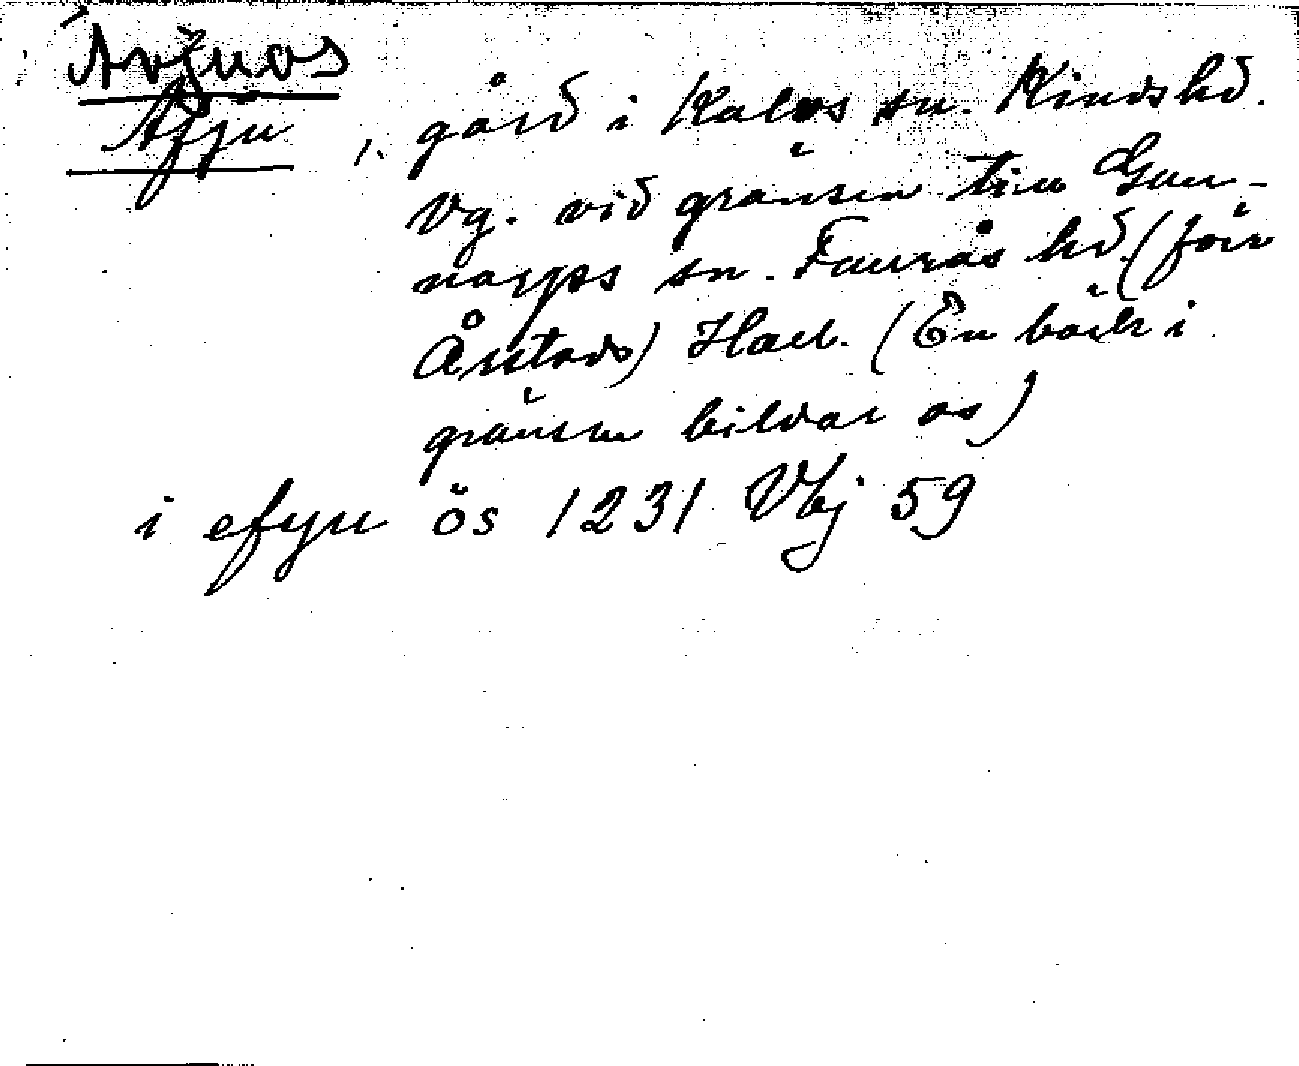 Ävjuås
Äfjü, gård i Kalvs sn. Kinds hd.
Vg. vid gränsen till Gun-
narps sn. Faurås hd. (förr
Årstads) Hall. (En bäck i
gränsen bildar os)
i efyu ös 1231 Vbj 59